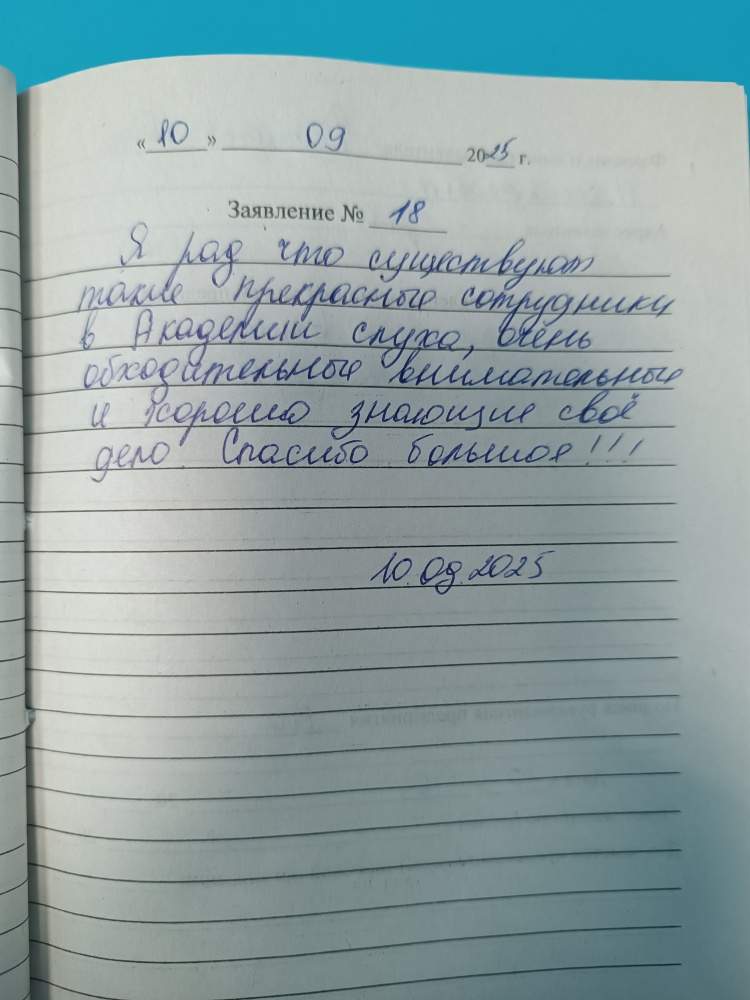 « 10 » 09 2025 г.
Заявление № 18
Я рад что существуют
такие прекрасные сотрудники
в Академии слуха, очень
обходительные внимательные
и хорошо знающие своё
дело. Спасибо большое!!!
10.09.2025